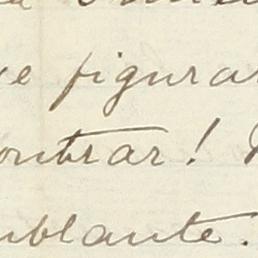 figurar
ontrar!
mblante.